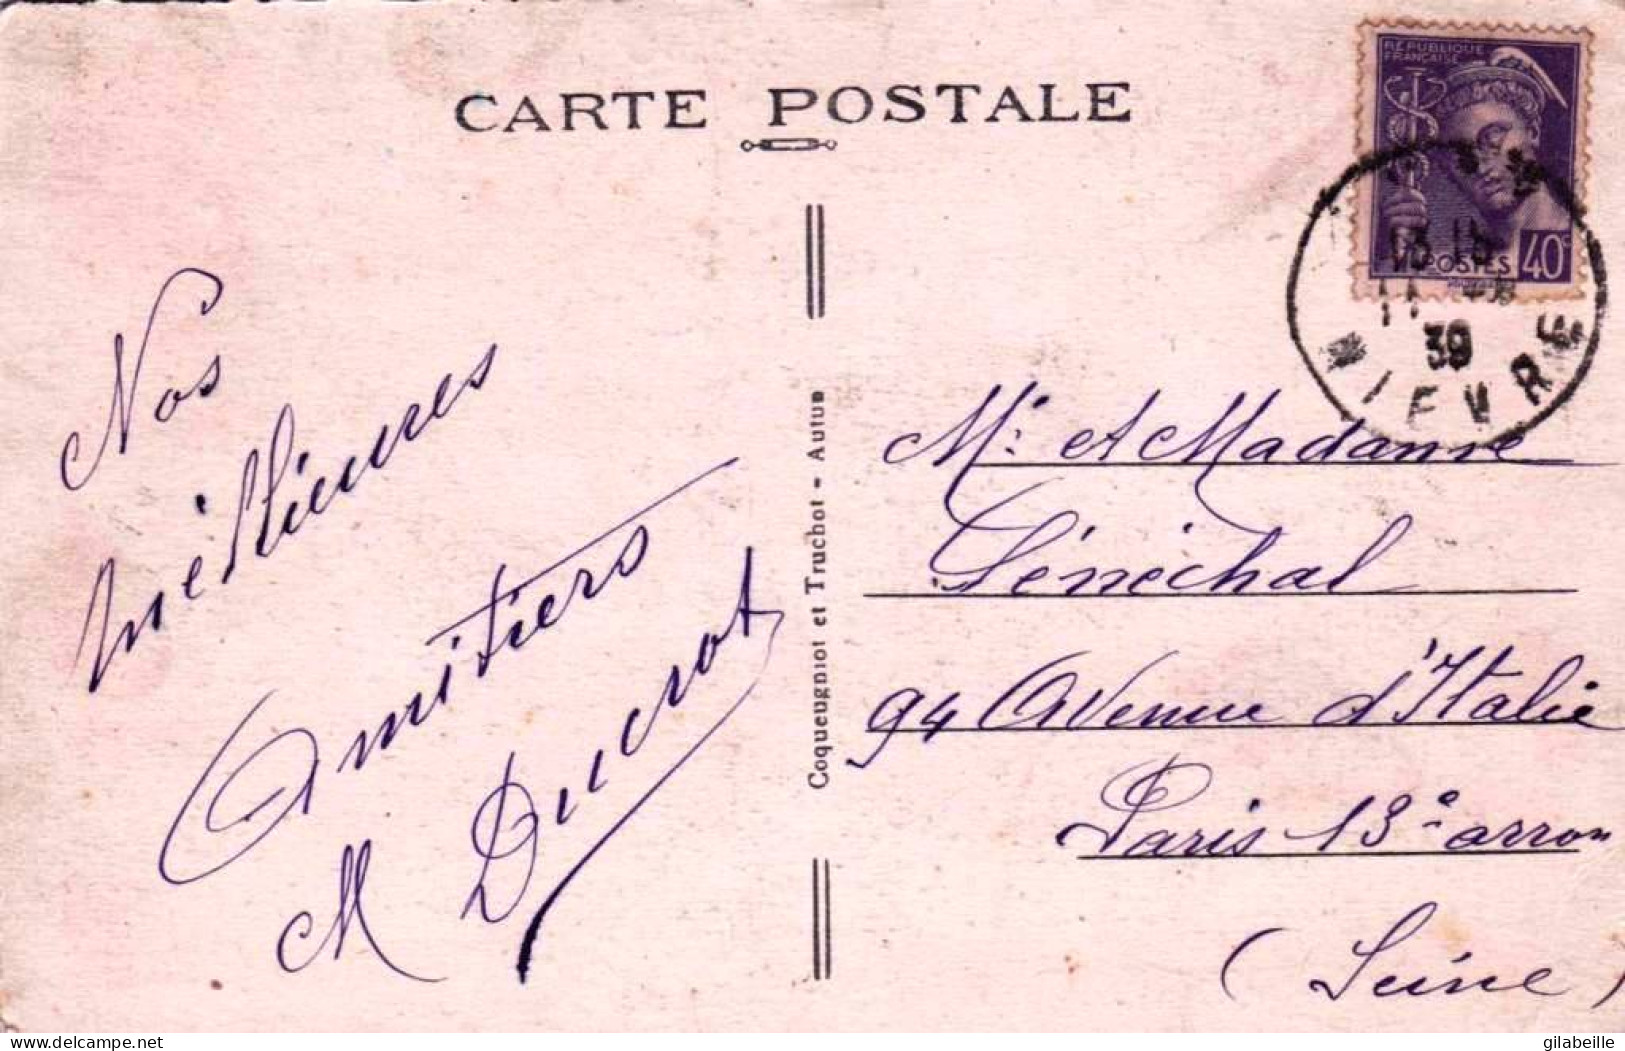 CARTE POSTALE
RÉPUBLIQUE
FRANÇAISE
POSTES
40c
39
NIEVRE
Nos
meillieures
Amitiers
M Ducrot
Coqueugniot et Truchot - Autun
Mr et Madame
Sénéchal
94 Avenue d'Italie
Paris 13e arron
(Seine)
delcampe.net
gilabeille